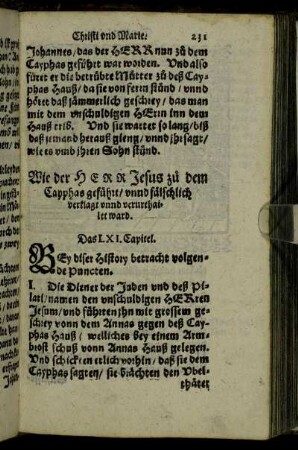 Christi vnd Marie. 231
Johannes, das der HERR nun zů dem
Cayphas gefůhrt war worden. Vnd also
fůret er die betrübte Můtter zů deß Cay-
phas Hauß/ da sie von ferrn stůnd/ vnnd
hôret daß jämmerlich geschrey/ das man
mit dem vnschuldigen HErrn inn dem
Hauß trib. Vnd sie wartet so lang/ biß
daß jemand herauß gieng/ vnnd jhr sagt/
wie es vmb jhren Sohn stůnd.
Wie der HERR Jesus zů dem
Cayphas gefůhrt/ vnnd fälschlich
verklagt vnnd verurthai-
let ward.
Das LXI. Capitel.
BEy diser History betracht volgen-
de Puncten.
I. Die Diener der Juden vnd deß Pi-
lati/ namen den vnschuldigen HERren
Jesum/ vnd fůhrten jhn mit grossem ge-
schrey vonn dem Annas gegen deß Cay-
phas Hauß/ welliches bey einem Arm-
brost schuß vonn Annas Hauß gelegen.
Vnd schickten etlich vorhin/ daß sie dem
Cayphas sagten/ sie brächten den Vbel-
thäter